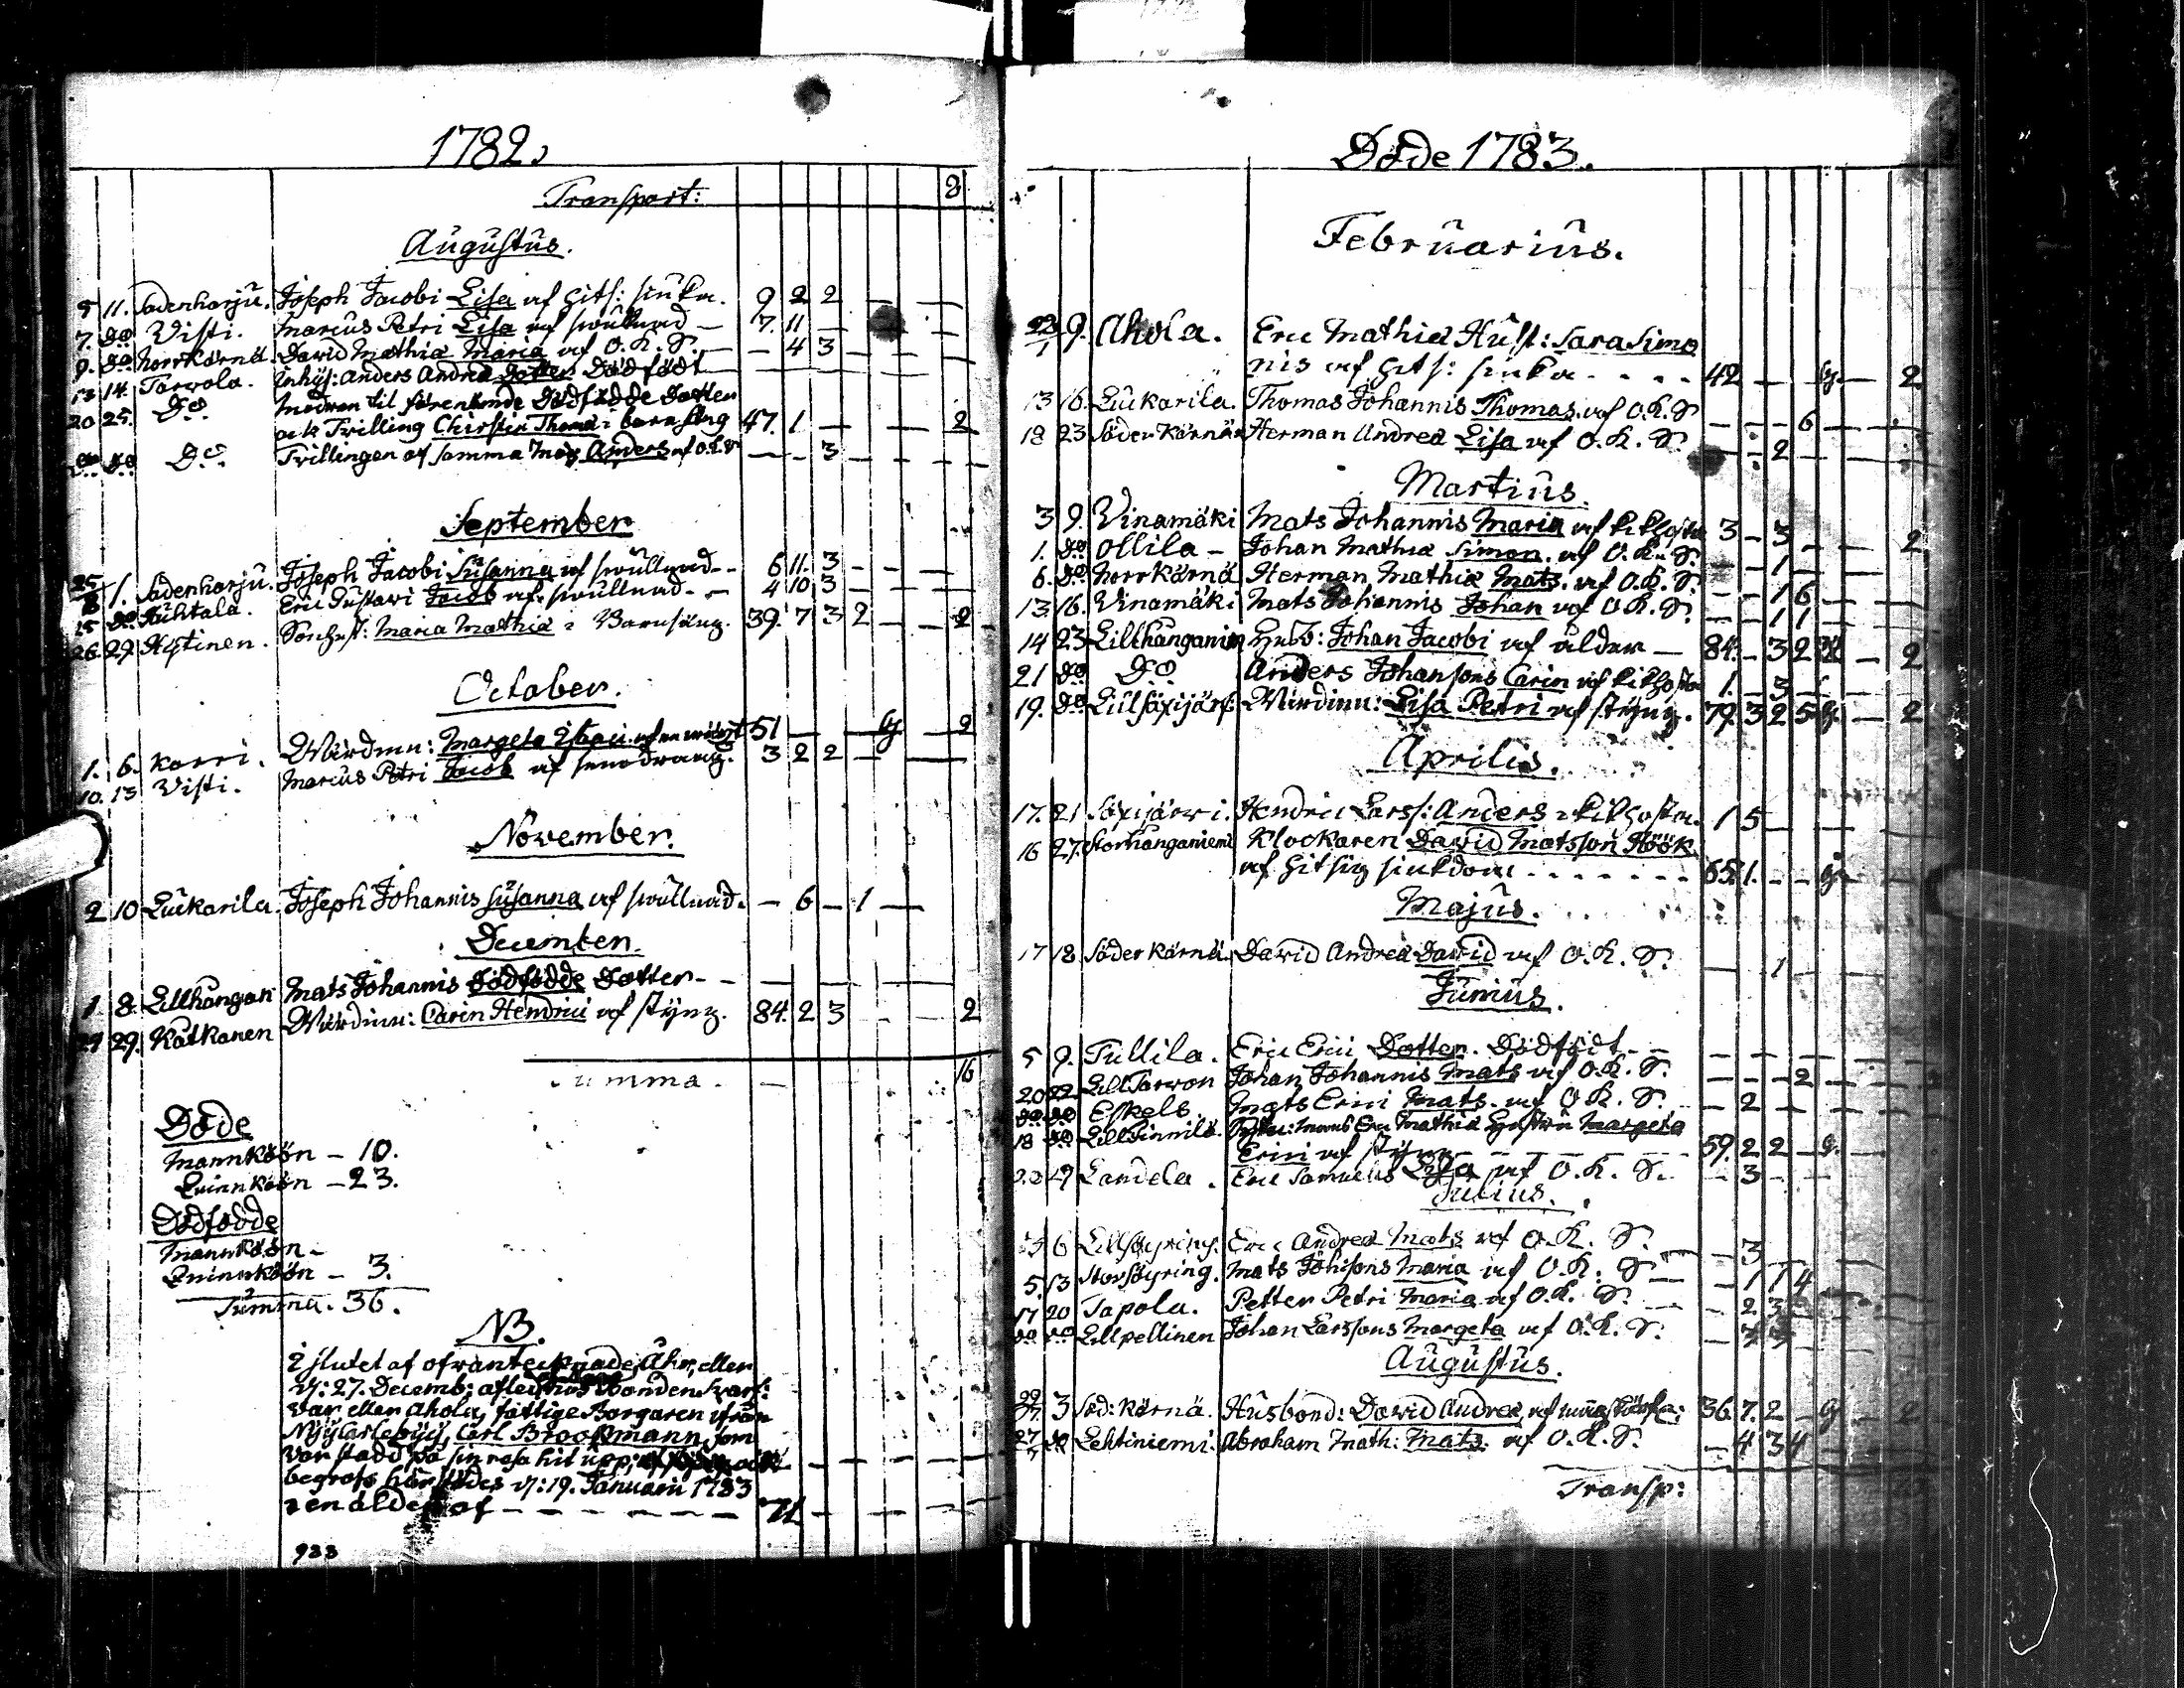 1782.
Transport: 8
Augustus.
5 11. Sadenharju. Joseph Jacobi Lisa af hits: siuka. 9 2 2 — —
7. do Visti. Marcus Petri Lisa af swullnad — 7. 11 — — —
9. do Norrkärnä. David Mathiæ Maria af O. K. S. — — 4 3 — — —
13 14. Tarvola. Inhys: Anders Andreæ Dotter Dödfödt
20 25. Do. Modren til förenämnde Dödfödde Dotter
ock Twilling Christin Thomæ i barnsäng 47. 1 — — 2
Do Do Do. Twillingen af samma Mor Anders af O.K.S — — 3 — — —
September
25/8 1. Sadenharju. Joseph Jacobi Susanna af swullnad - - 6 11. 3 - —
25 do Huhtala. Eric Gustavi Jacob af swullnad. - - 4 10 3 — —
26. 29. Hytinen. Sonhust: Maria Mathiæ i Barnsäng. 39. 7 3 2 — — 2
October.
1. 6. Karri. Wärdinn: Margeta 51 — — g — 2
10. 13 Visti. Marcus Petri Jacob af 3 2 2 — —
November.
2 10 Luckarila. Joseph Johannis Susanna af swullnad. — 6 — 1 —
December.
1 8. Lillhångan Mats Johannis Dödfödde Dotter - - — — — —
29 29. Kätkänen Wärdinn: Carin Hendrici af styng. 84. 2 3 2
Summa. — 16
Döde
Mannköön — 10.
Qvinnköön — 23.
Dödfödde
Mannköön —
Qvinnköön — 3.
Summa. 36.
NB.
I slutet af ofvantecknade Åhr, eller
d: 27. Decemb: afled hos Bonden
var eller Ahola, fattige Borgaren ifrån
Nyy Carleby, Carl Brookmann, som
var stadd på sin resa hit upp, ock
begrofs härstädes d: 19. Januarii 1783
i en ålder af — — — — — 71
933
Döde 1783.
Februarius.
22/1 9. Ahola. Eric Mathiæ Hust: Sara Simo
nis af hits: siuka - - - - 42 — — g. — 2
13 16. Luckarila. Thomas Johannis Thomas. af O. K. S — — — 6 —
18 23 Söderkärnä Herman Andreæ Lisa af O. K. S. — — 2 —
Martius.
3 9. Vinamäki Mats Johannis Maria af kikhosta 3 — 3 — — 2
1. do Ollila — Johan Mathiæ Simon. af O. K. S. — — 1 —
6. do Norrkärnä Herman Mathiæ Mats. af O. K. S.
13. 16. Vinamäki Mats Johannis Johan af O. K. S. — — 1 6
14 23 Lillhånganiem Husb: Johan Jacobi af ålder — 84. — 3 2 — 2
21 do Do Anders Johansons Carin af kikhosta 1. — 3 —
19. do Lillsäxijärf: Wärdinn: Lisa Petri af styng. 79. 3 2 5 g. — 2
Aprilis.
17. 21 Säxijärvi. Hendric Larss: Anders i kikhosta. 1 5 — — —
16 27. Storhånganiemi Klockaren David Matsson Höök
af hitsig siukdom - - - - - - 65. 1. - - g. —
Majus.
17 18 Söderkärnä. David Andreæ David af O. K. S. — — 1 — —
Junius.
5 9. Tullila. Eric Erici Dotter. Dödfödt - - — — — —
20 22 Lill Tarvon Johan Johannis Mats af O. K. S. — — — 2 —
do do Eskels. Mats Erici Mats. af O. K. S. — 2 — —
18 do Lill Pinnilä. Eric Mathiæ Hustru Margeta
Erici af styng — — — — 59. 2 2 — g. —
29 Landela. Eric Samuelis Lisa af O. K. S. — 3 — —
Julius.
3 6 Lillsäyring. Eric Andreæ Mats af O. K. S. — 3
5. 13 Storsäyring. Mats Johansons Maria af O. K. S — — 1 1 4
17 20 Tapola. Petter Petri Maria af O. K. S. — — 2 3
do do Lillpellinen Johan Larssons Margeta af O. K. S.
Augustus.
3 Söd: Kärnä. Husbond: David Andreæ, af 36. 7. 2 — g —
do Lehtiniemi. Abraham Math: Mats. af O. K. S. — 4 3 4 —
Transp: